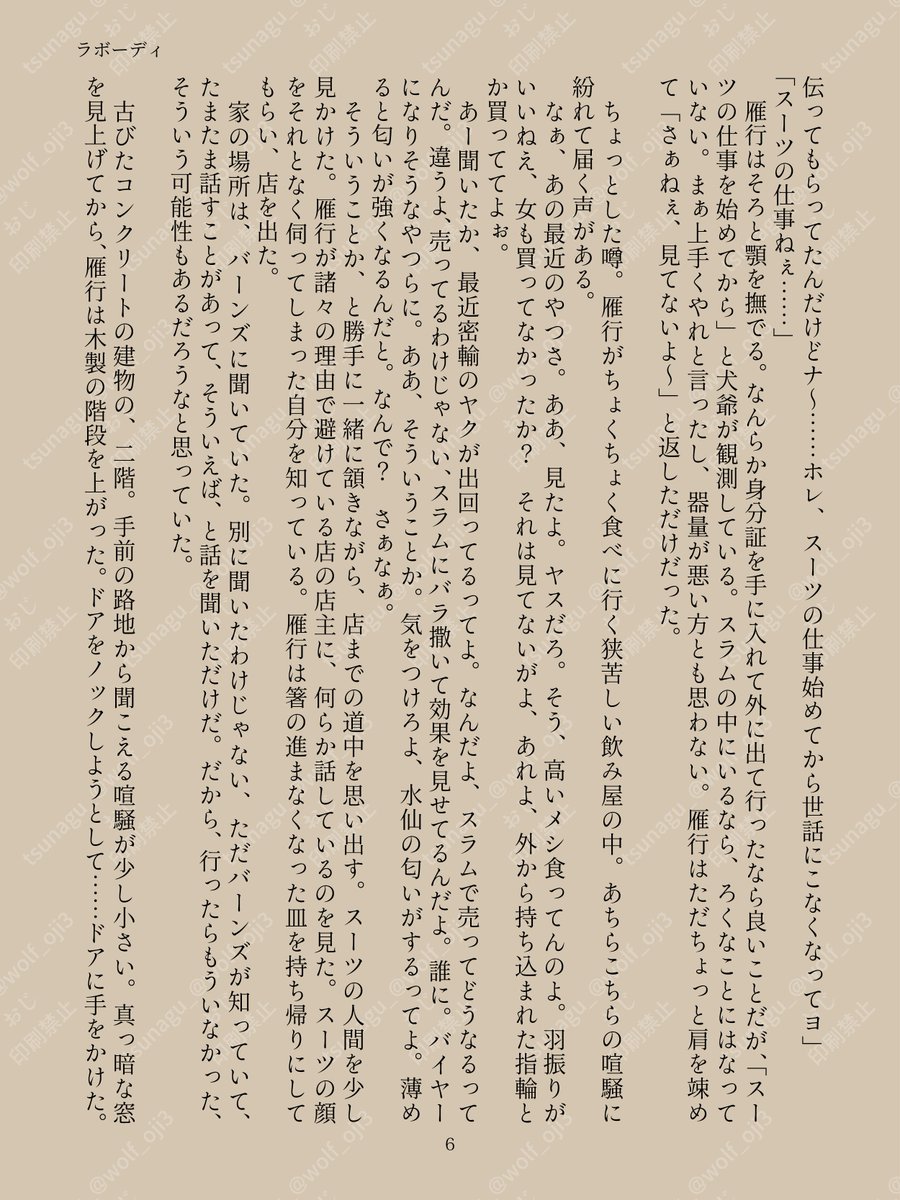 ラボーディ
伝ってもらってたんだけどナ～……ホレ、スーツの仕事始めてから世話にこなくなってヨ」
「スーツの仕事ねぇ……」
　雁行はそろと顎を撫でる。なんらか身分証を手に入れて外に出て行ったなら良いことだが、「スー
ツの仕事を始めてから」と犬爺が観測している。スラムの中にいるなら、ろくなことにはなって
いない。まぁ上手くやれと言ったし、器量が悪い方とも思わない。雁行はただちょっと肩を竦め
て「さぁねぇ、見てないよ～」と返しただけだった。
　ちょっとした噂。雁行がちょくちょく食べに行く狭苦しい飲み屋の中。あちらこちらの喧騒に
紛れて届く声がある。
　なぁ、あの最近のやつさ。ああ、見たよ。ヤスだろ。そう、高いメシ食ってんのよ。羽振りが
いいねえ、女も買ってなかったか？　それは見てないがよ、あれよ、外から持ち込まれた指輪と
か買っててよぉ。
　あー聞いたか、最近密輸のヤクが出回ってるってよ。なんだよ、スラムで売ってどうなるって
んだ。違うよ、売ってるわけじゃない、スラムにバラ撒いて効果を見せてるんだよ。誰に。バイヤー
になりそうなやつらに。ああ、そういうことか。気をつけろよ、水仙の匂いがするってよ。薄め
ると匂いが強くなるんだと。なんで？　さぁなぁ。
　そういうことか、と勝手に一緒に頷きながら、店までの道中を思い出す。スーツの人間を少し
見かけた。雁行が諸々の理由で避けている店の店主に、何らか話しているのを見た。スーツの顔
をそれとなく伺ってしまった自分を知っている。雁行は箸の進まなくなった皿を持ち帰りにして
もらい、店を出た。
　家の場所は、バーンズに聞いていた。別に聞いたわけじゃない、ただバーンズが知っていて、
たまたま話すことがあって、そういえば、と話を聞いただけだ。だから、行ったらもういなかった、
そういう可能性もあるだろうなと思っていた。
　古びたコンクリートの建物の、二階。手前の路地から聞こえる喧騒が少し小さい。真っ暗な窓
を見上げてから、雁行は木製の階段を上がった。ドアをノックしようとして……ドアに手をかけた。
6
tsunagu_@wolf_oji3
おじ
印刷禁止